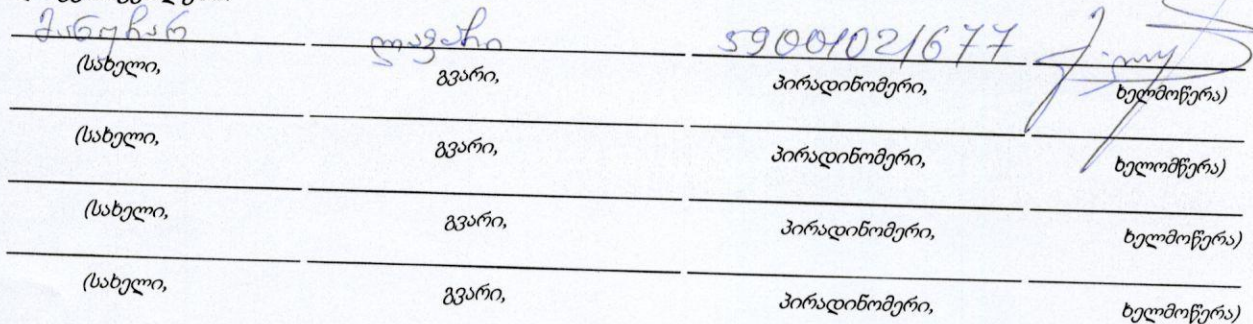 მანუჩარ ლაფაჩი 59001021677
(სახელი, გვარი, პირადინომერი, ხელმოწერა)
(სახელი, გვარი, პირადინომერი, ხელომწერა)
(სახელი, გვარი, პირადინომერი, ხელმოწერა)
(სახელი, გვარი, პირადინომერი, ხელმოწერა)